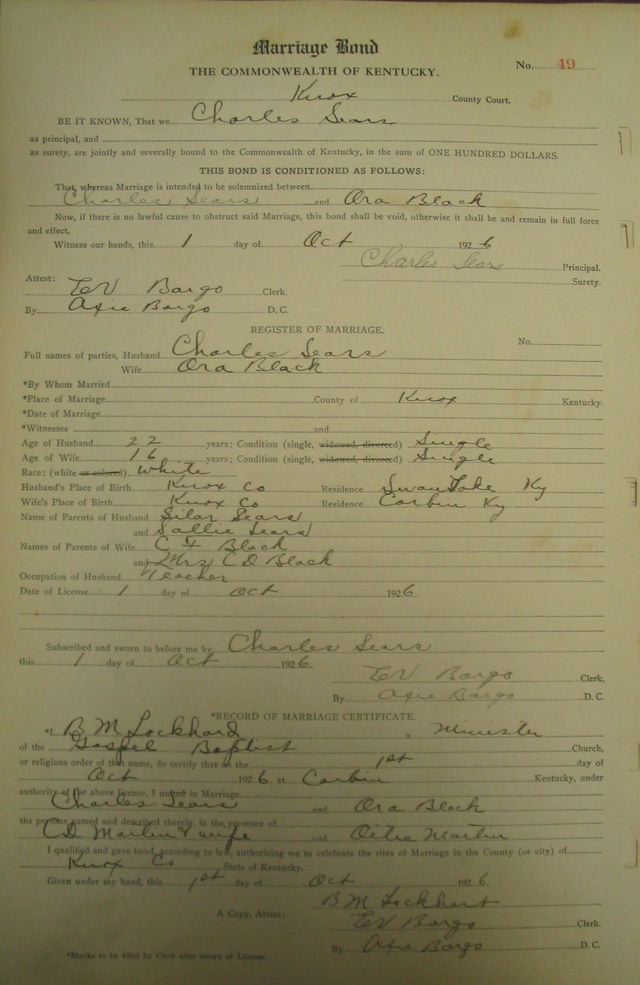 Marriage Bond
THE COMMONWEALTH OF KENTUCKY. No. 49
Knox County Court.
BE IT KNOWN, That we Charles Sears
as principal, and
as surety, are jointly and severally bound to the Commonwealth of Kentucky, in the sum of ONE HUNDRED DOLLARS.
THIS BOND IS CONDITIONED AS FOLLOWS:
That, whereas Marriage is intended to be solemnized between
Charles Sears and Ora Black
Now, if there is no lawful cause to obstruct said Marriage, this bond shall be void, otherwise it shall be and remain in full force
and effect,
Witness our hands, this 1 day of Oct 1926
Charles Sears Principal.
Surety.
Attest:
EV Bargo Clerk.
By Bargo D. C.
REGISTER OF MARRIAGE.
No.
Full names of parties, Husband Charles Sears
Wife Ora Black
*By Whom Married
*Place of Marriage County of Knox Kentucky.
*Date of Marriage
*Witnesses and
Age of Husband 22 years; Condition (single, widowed, divorced) Single
Age of Wife 16 years; Condition (single, widowed, divorced) Single
Race: (white or colored) White
Husband's Place of Birth Knox Co Residence Swan Lake Ky
Wife's Place of Birth Knox Co Residence Corbin Ky
Name of Parents of Husband Silar Sears
and Sallie Sears
Names of Parents of Wife C Black
and Mrs C D Black
Occupation of Husband Teacher
Date of License 1 day of Oct 1926
Subscribed and sworn to before me by Charles Sears
this 1 day of Oct 1926
EV Bargo Clerk,
By Bargo D. C.
*RECORD OF MARRIAGE CERTIFICATE.
*I, B M Lockhard, Minister
of the Gospel Baptist Church,
or religious order of that name, do certify that on the 1st day of
Oct 1926, at Corbin Kentucky, under
authority of the above license, I united in Marriage
Charles Sears and Ora Black
the persons named and described therein, in the presence of
C D Martin & wife and Martin
I qualified and gave bond, according to law, authorizing me to celebrate the rites of Marriage in the County (or city) of
Knox Co State of Kentucky.
Given under my hand, this 1st day of Oct 1926
B M Lockhart
A Copy, Attest: EV Bargo Clerk.
By Bargo D. C.
*Blanks to be filled by Clerk after return of License.